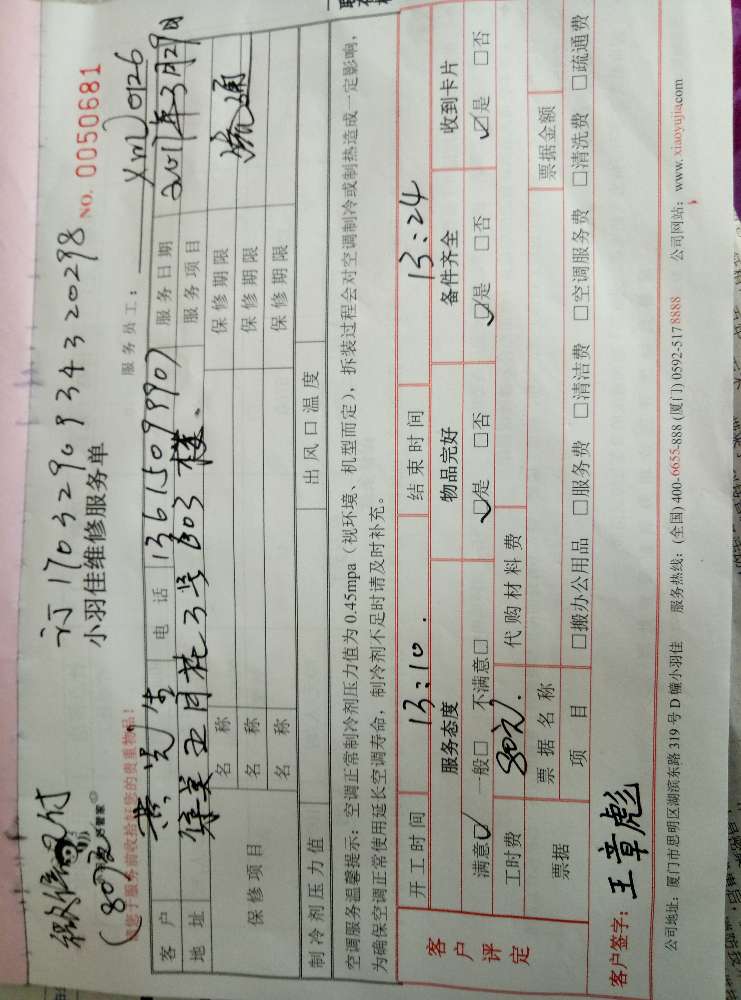 微信支付
(80元)
订1703290934320298
小羽佳维修服务单
NO. 0050681
请您于服务前收拾好您的贵重物品！
服务员工： XMJ0126
客户 黄先生 电话 13615099907 服务日期 2017年3月29日
地址 集美亚月花3号603楼. 服务项目 疏通
保修项目 名称 保修期限
名称 保修期限
名称 保修期限
制冷剂压力值 出风口温度
空调服务温馨提示：空调正常制冷剂压力值为 0.45mpa（视环境、机型而定），拆装过程会对空调制冷或制热造成一定影响，
为确保空调正常使用延长空调寿命，制冷剂不足时请及时补充。
客户评定 开工时间 13:10. 结束时间 13:24
服务态度 物品完好 备件齐全 收到卡片
满意☑ 一般□ 不满意□ ☑是 □否 ☑是 □否 ☑是 □否
工时费 80元. 代购材料费
票据 票据名称 票据金额
项目 □搬办公用品 □服务费 □清洁费 □空调服务费 □清洗费 □疏通费
客户签字：王章彪
公司地址：厦门市思明区湖滨东路 319 号 D 幢小羽佳 服务热线：(全国) 400-6655-888 (厦门) 0592-5178888 公司网站：www. xiaoyujia.com